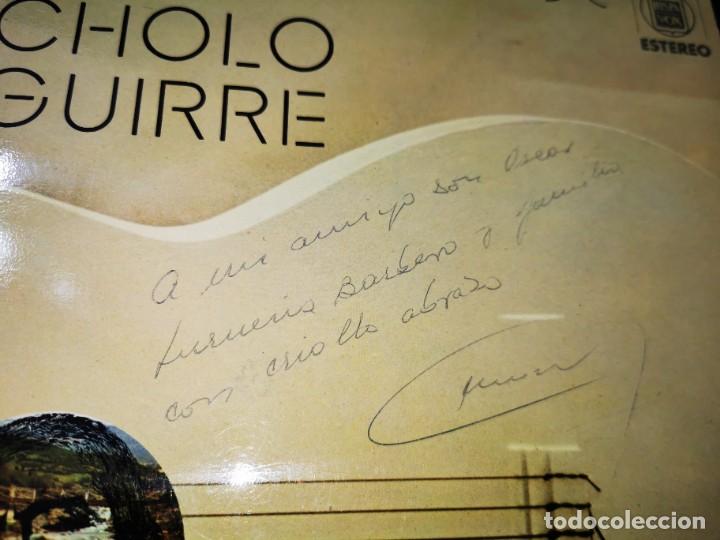 CHOLO
GUIRRE
ESTEREO
A mi amigo don Oscar
Barbero y familia
con criollo abrazo
todocoleccion
todocoleccion.net